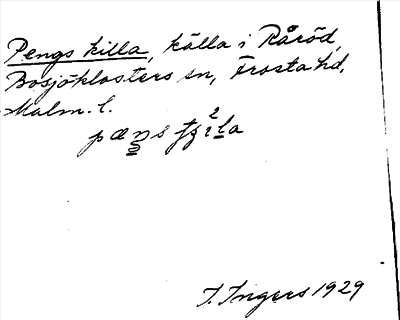 Pengs killa, källa i Råröd,
Bosjöklosters sn, Frosta hd,
Malm. l.
I. Ingers 1929